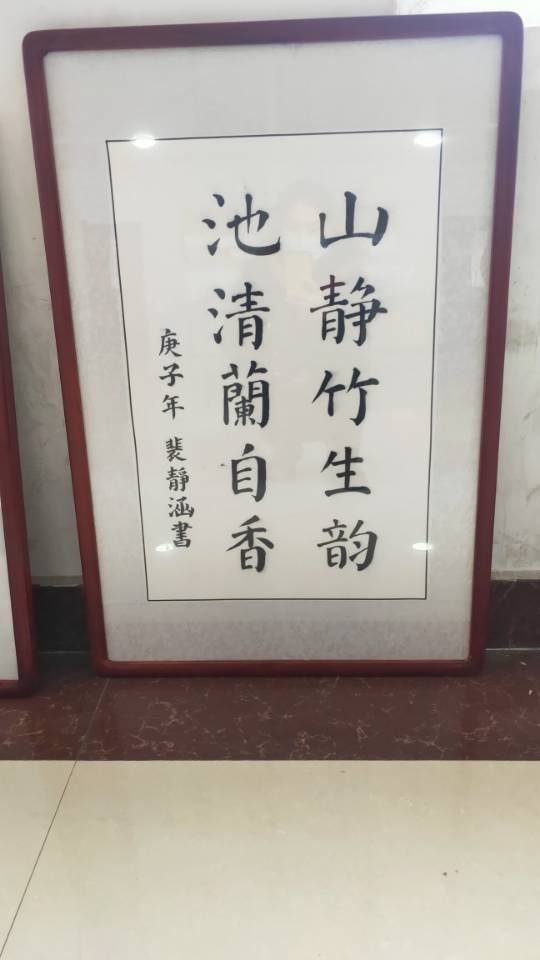 山静竹生韵
池清蘭自香
庚子年 裴静涵書